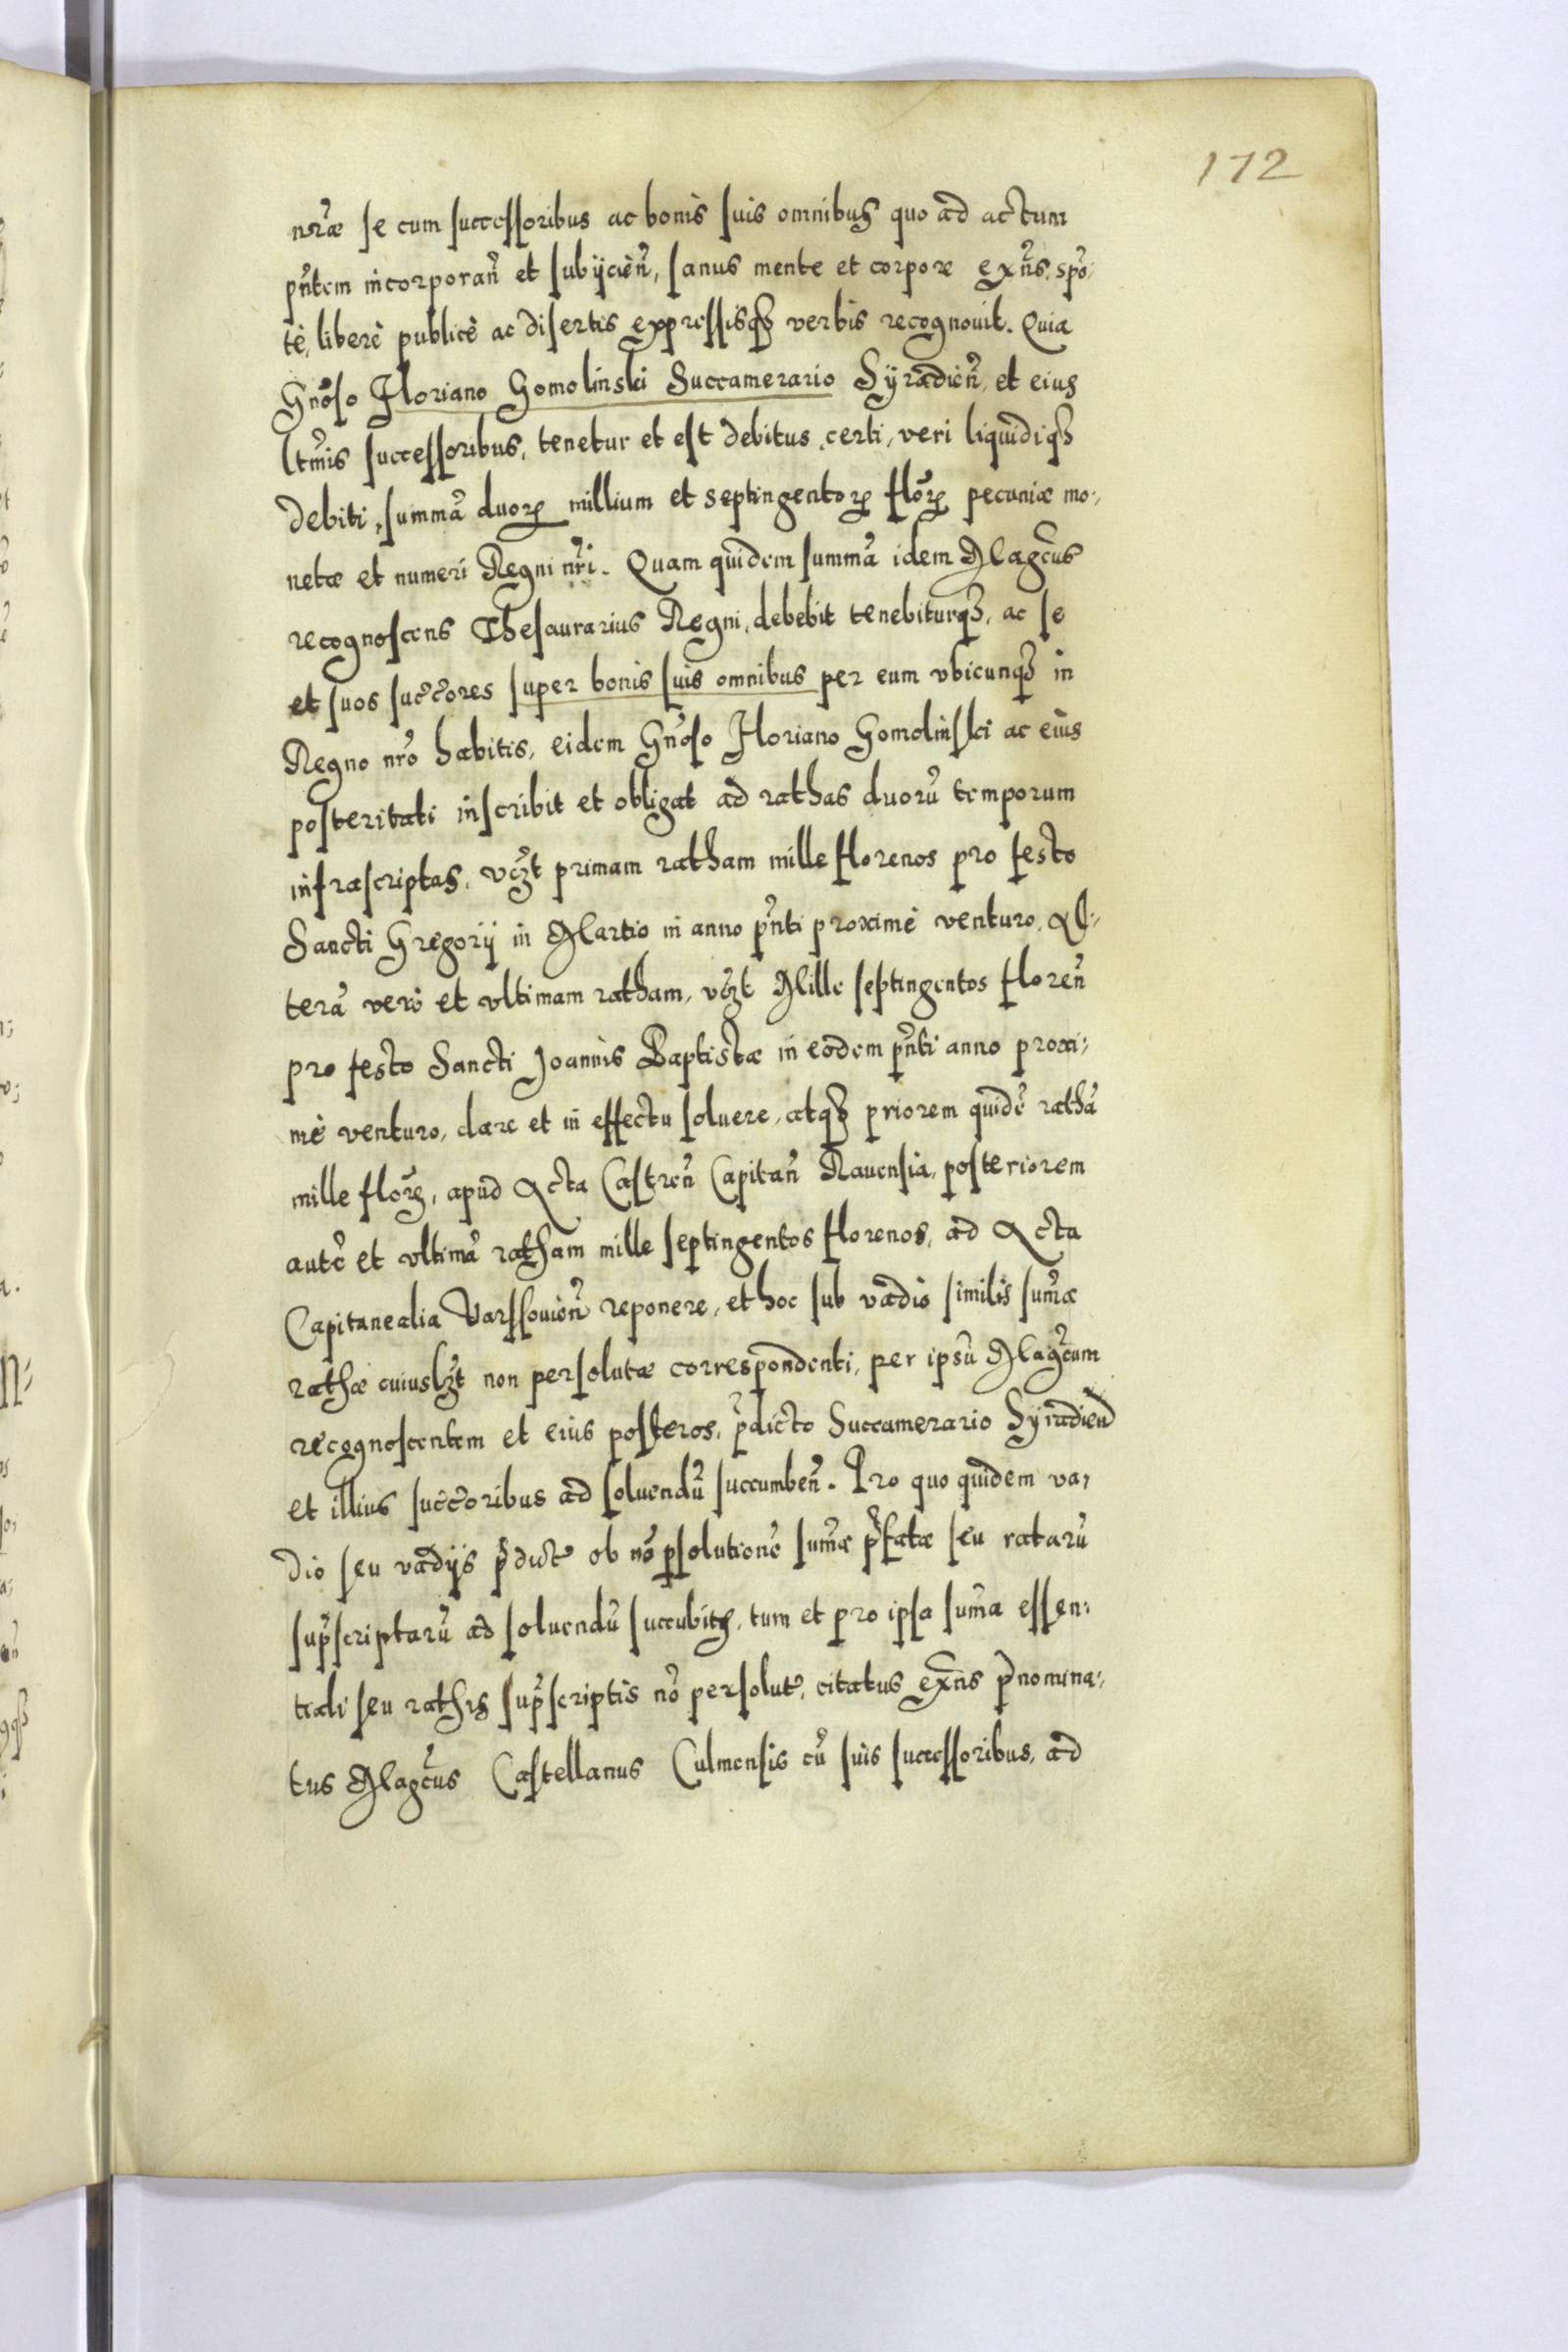 172
nr̃æ se cum successoribus ac bonis suis omnibus quo ad actum
pñtem incorporañ et subijcieñ, sanus mente et corpore exñs, spõ-
tè, liberè publicè ac disertis expressisq₃ verbis recognovit. Quia
Gnõso Floriano Gomolinski Succamerario Syradieñ, et eius
ltm̃is successoribus, tenetur et est debitus, certi, veri liquidiq₃
debiti, summã duoꝝ millium et septingentoꝝ flõꝝ pecuniæ mo-
netæ et numeri Regni nr̃i. Quam quidem summã idem Magc̃us
recognoscens Thesaurarius Regni, debebit tenebiturq₃, ac se
et suos succ̃ores super bonis suis omnibus per eum vbicunq₃ in
Regno nr̃o habitis, eidem Gnõso Floriano Gomolinski ac eius
posteritati inscribit et obligat ad rathas duorũ temporum
infrascriptas, vcz̃t primam ratham mille florenos pro festo
Sancti Gregorij in Martio in anno pñti proximè venturo, Al-
terã verò et vltimam ratham, vcz̃t Mille septingentos floreñ
pro festo Sancti Joannis Baptistæ in eodem pñti anno proxi-
mè venturo, dare et in effectu soluere, atq₃ priorem quidẽ rathã
mille flor̃, apud Acta Castreñ Capitañ Rauensia, posteriorem
autẽ et vltimã ratham mille septingentos florenos, ad Acta
Capitanealia Varssouieñ reponere, et hoc sub vadio similis sum̃æ
rathæ cuiuslz̃t non persolutæ correspondenti, per ipsũ Magc̃um
recognoscentem et eius posteros, p̃dicto Succamerario Syradieñ
et illius succ̃oribus ad soluendũ succumbeñ. Pro quo quidem va-
dio seu vadijs p̃dict̃ ob nõ ꝑsolutionẽ sum̃æ p̃fatæ seu ratarũ
sup̃scriptarũ ad soluendũ succubit₉, tum et pro ipsa sum̃a essen-
tiali seu rathis sup̃scriptis nõ persolut̃, citatus exñs p̃nomina-
tus Magc̃us Castellanus Culmensis cũ suis successoribus, ad